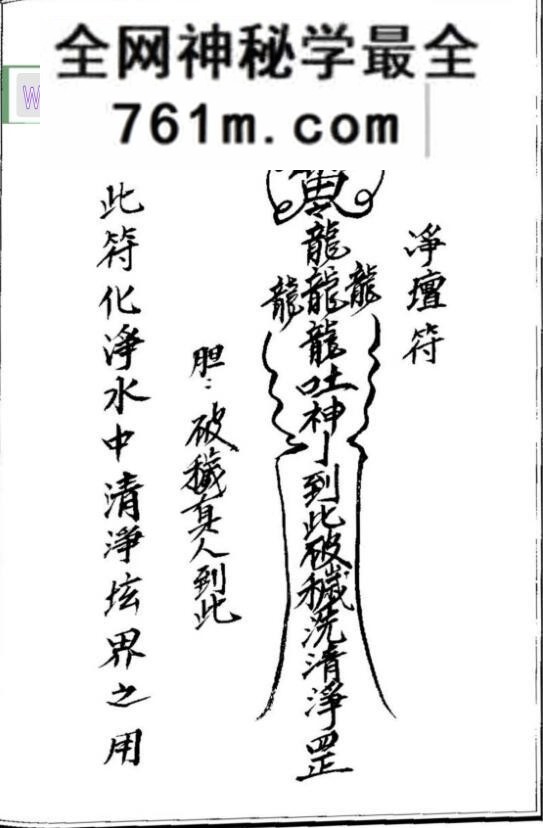 全网神秘学最全
761m.com
W
净壇符
龍
龍龍龍
龍
吐神
到此破穢洗清淨罡
胆：破穢真人到此
此符化淨水中清淨坛界之用